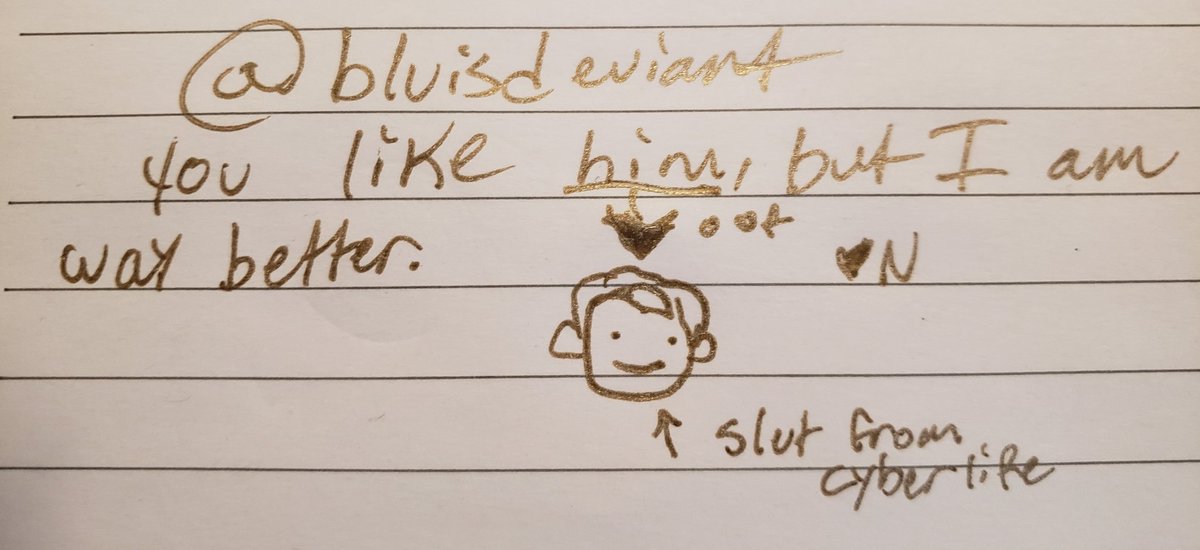 @bluisdeviant
you like him, but I am
way better.
♥N
slut from
cyberlife